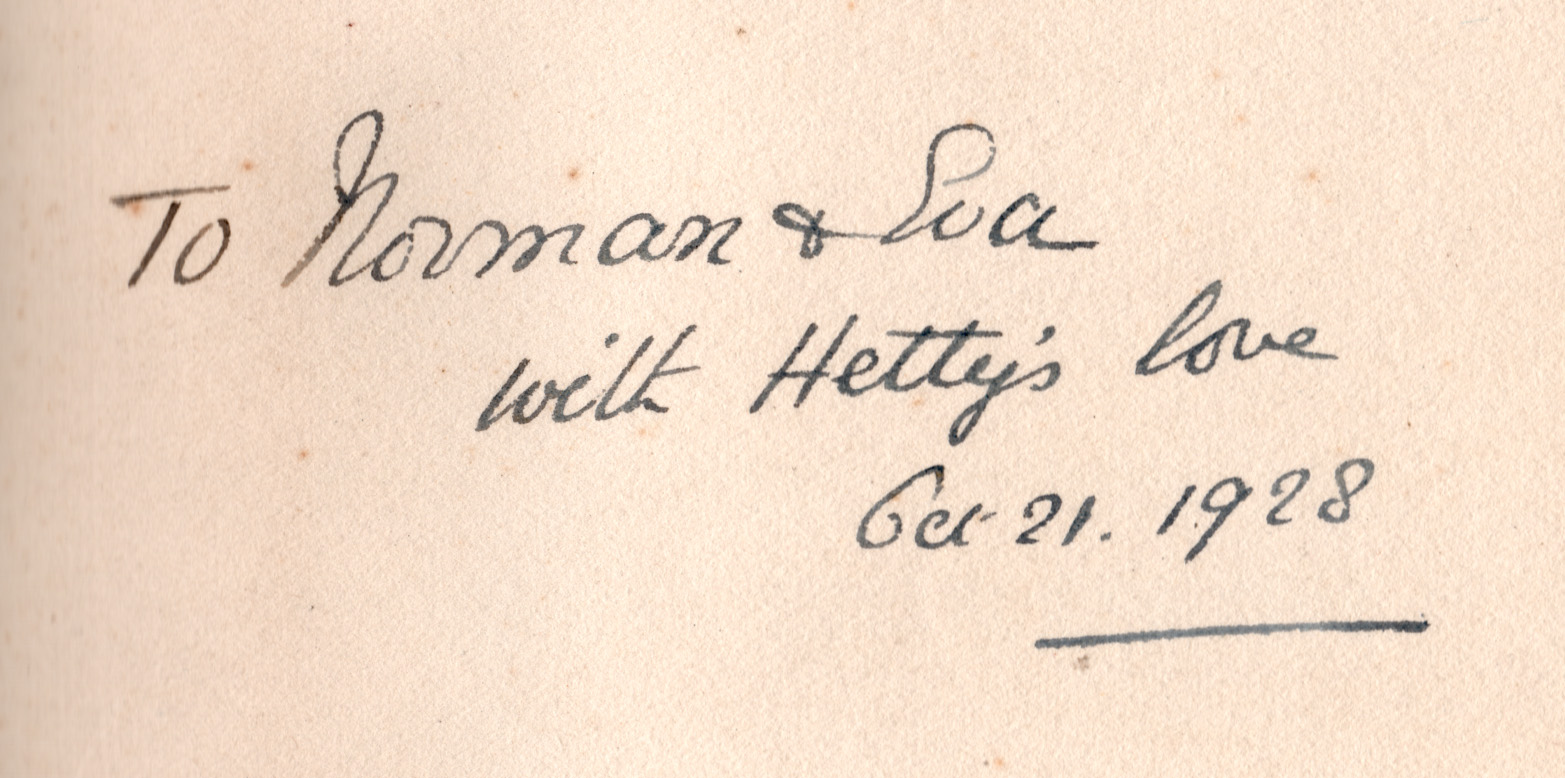 To Norman & Eva
with Hetty's love
Oct 21. 1928